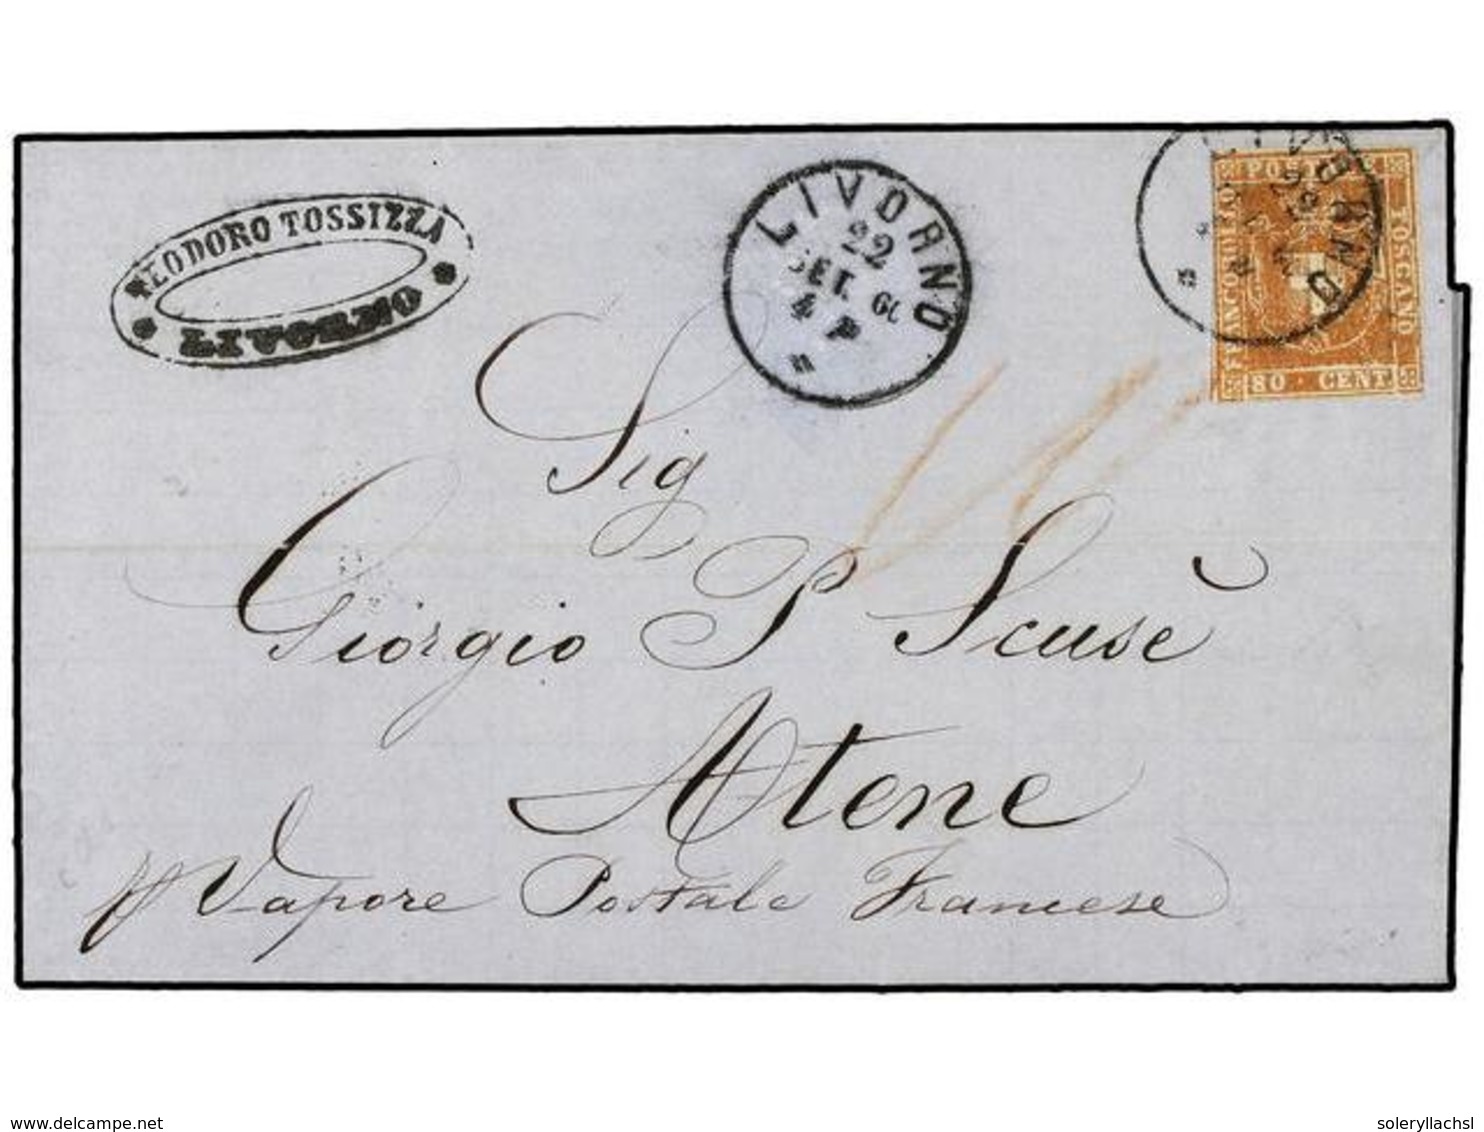 TEODORO TOSSIZZA
LIVORNO
LIVORNO
22
SET. 60
4 P
LIVORNO
FRANCOBOLLO
POSTALE
TOSCANO
80 · CENT.
Sig
Giorgio P Scusè
Atene
Vapore Postale Francese
delcampe.net
soleryllachsl